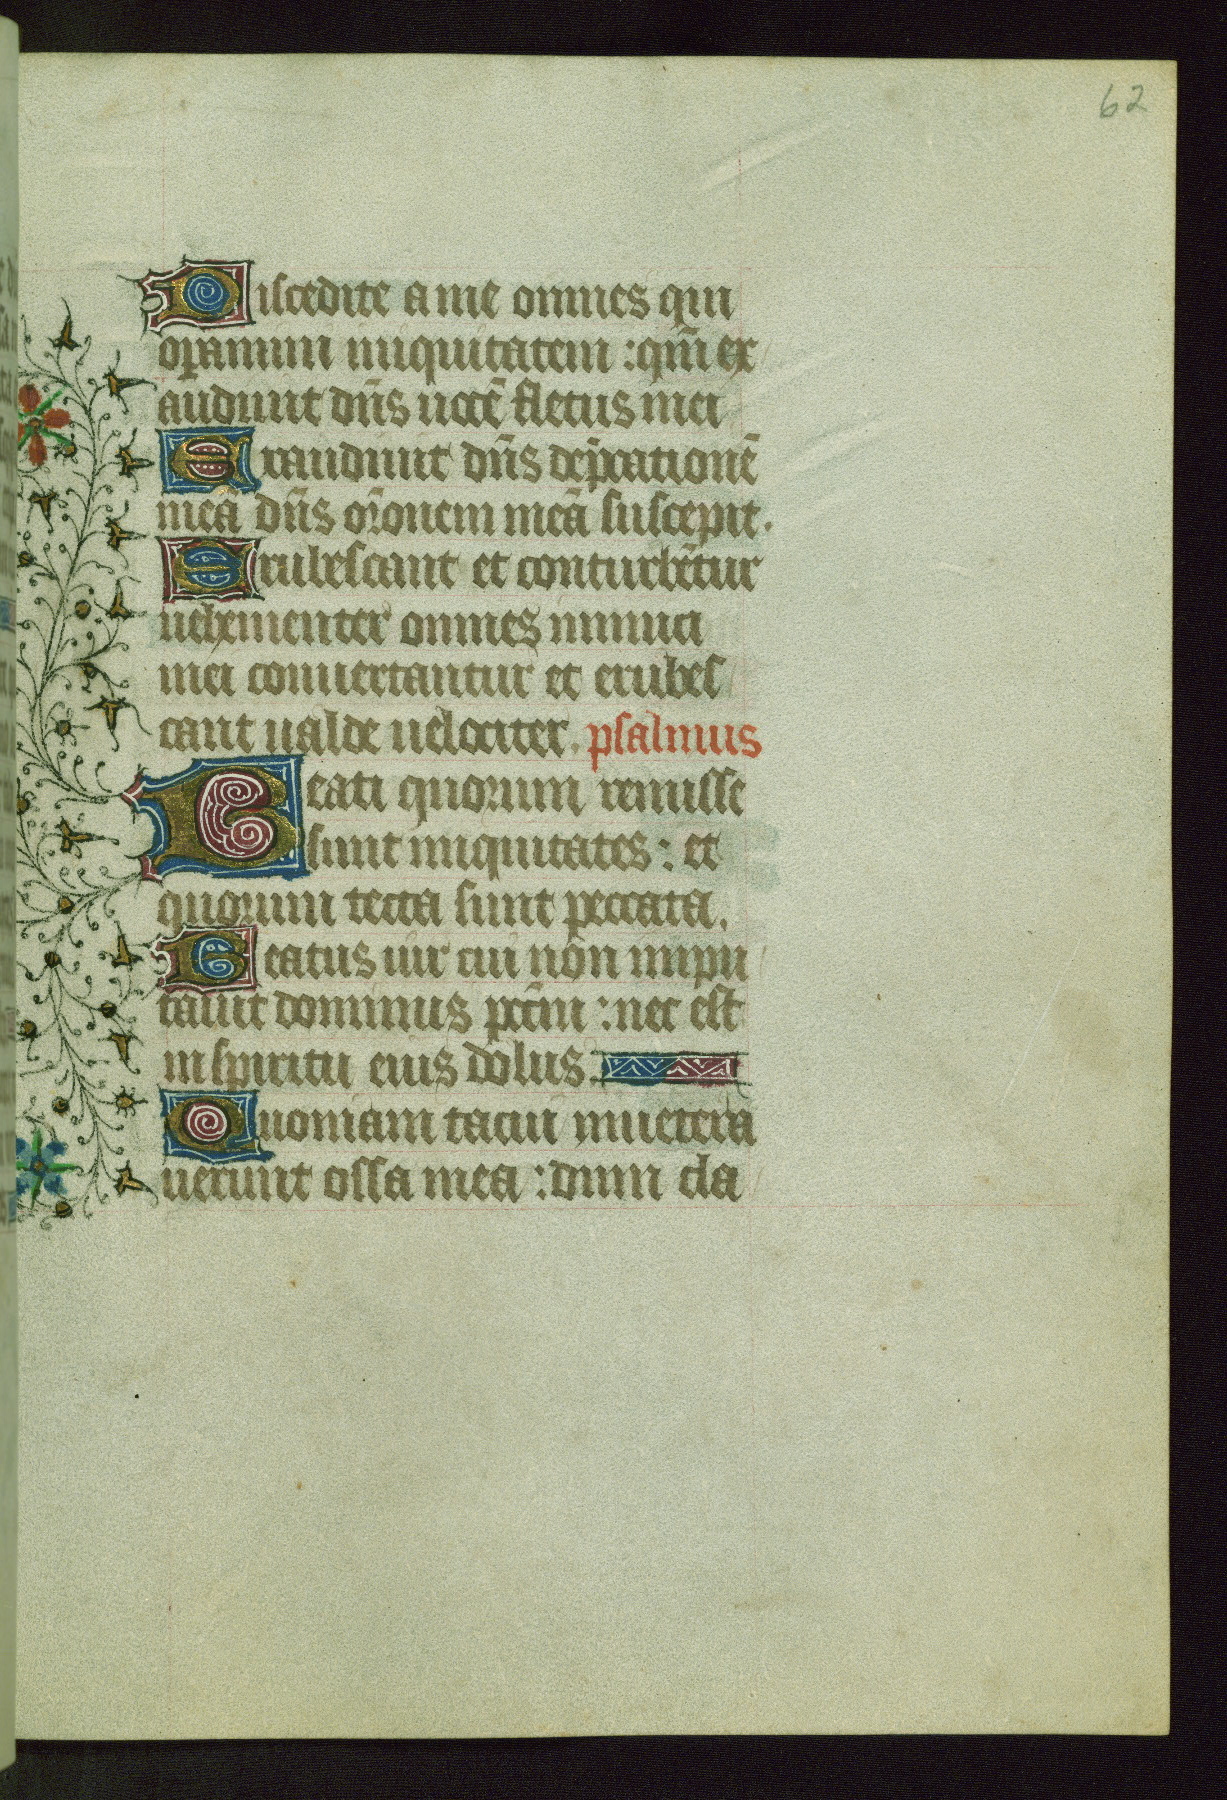 62
Discedite a me omnes qui
operamini iniquitatem : qm̄ ex
audiuit dn̄s uocē fletus mei
Exaudiuit dn̄s dep̄cationē
meā dn̄s or̄onem meā suscepit.
Erubescant et conturbētur
uehementer omnes inimici
mei conuertantur et erubes
cant ualde uelociter. psalmus
Beati quorum remisse
sunt iniquitates : et
quorum tecta sunt peccata.
Beatus uir cui non impu
tauit dominus pct̄m : nec est
in spiritu eius dolus.
Quoniam tacui inuetera
uerunt ossa mea : dum cla